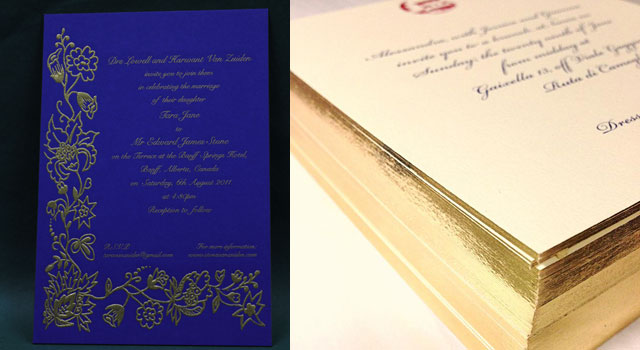 Drs Lowell and Harwant Van Zuiden
invite you to join them
in celebrating the marriage
of their daughter
Tara Jane
to
Mr Edward James Stone
on the Terrace at the Banff Springs Hotel,
Banff, Alberta, Canada
on Saturday, 6th August 2011
at 4:30pm
Reception to follow
R.S.V.P.
For more information:
with and
invite you to a brunch at
Sunday, the twenty ninth of June
from midday at
13, off
Dress